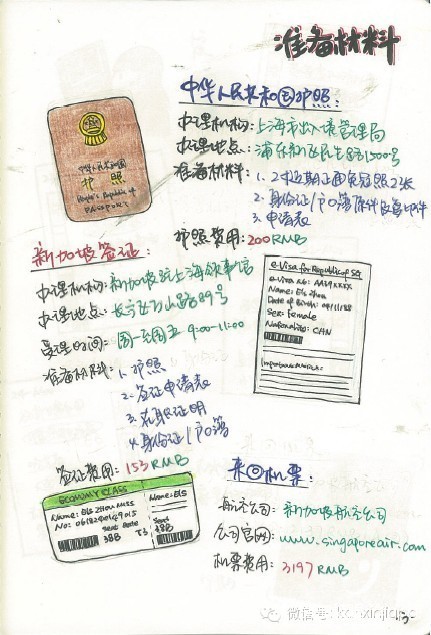 准备材料
中华人民共和国护照:
办理机构:上海市出入境管理局
办理地点:浦东新区民生路1500号
准备材料:1. 2寸近期正面免冠照2张
2. 身份证/户口簿原件及复印件
3. 申请表
护照费用:200RMB
中华人民共和国
护照
People's Republic of
PASSPORT
新加坡签证:
办理机构:新加坡驻上海领事馆
办理地点:长宁区万山路89号
受理时间:周一至周五 9:00-11:00
准备材料:1. 护照
2. 签证申请表
3. 在职证明
4. 身份证/户口簿
签证费用:153RMB
e-Visa for Republic of SG
e-Visa No: AA39XXXX
Name: Els Zhou
Date of Birth: 08/11/88
Sex: Female
Nationality: CHN
Important Notice:
ECONOMY CLASS
Name: Els Zhou Miss
Seat Gate
38B T3
Name: Els
Seat
38B
来回机票:
航空公司:新加坡航空公司
公司官网:www.singaporeair.com
机票费用:3197RMB
微信号: ke-xinjiapo